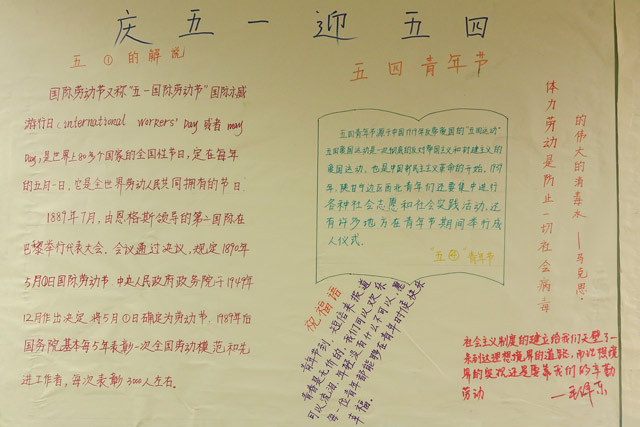 庆五一迎五四
五①的解说
国际劳动节又称“五一国际劳动节”国际示威
游行日（international workers' Day 或者 may
Day）是世界上80多个国家的全国性节日，定在每年
的五月一日，它是全世界劳动人民共同拥有的节日
1889年7月，由恩格斯领导的第二国际在
巴黎举行代表大会。会议通过决议，规定1890年
5月①日国际劳动节。中央人民政府政务院于1949年
12月作出决定，将5月①日确定为劳动节。1989年后
国务院基本每5年表彰一次全国劳动模范和先
进工作者，每次表彰3000人左右。
五四青年节
五四青年节源于中国1919年反帝爱国的“五四运动”
五四爱国运动是一次彻底的反对帝国主义和封建主义的
爱国运动，也是中国新民主主义革命的开始。1939
年，陕甘宁边区西北青年们还要集中进行
各种社会志愿和社会实践活动，还
有许多地方在青年节期间举行成
人仪式。
“五四”青年节
体力劳动是防止一切社会病毒
的伟大的消毒水——马克思。
祝福语
青年节到，短信来报道
青春是无价的，我们可以欢乐
可以流泪，年轻没有什么不可以，愿
每一位青年都能够在青年时候快乐
幸福。
社会主义制度的建立给我们开辟了一
条到达理想境界的道路，而理想境
界的实现还是要靠我们的辛勤
劳动
——毛泽东